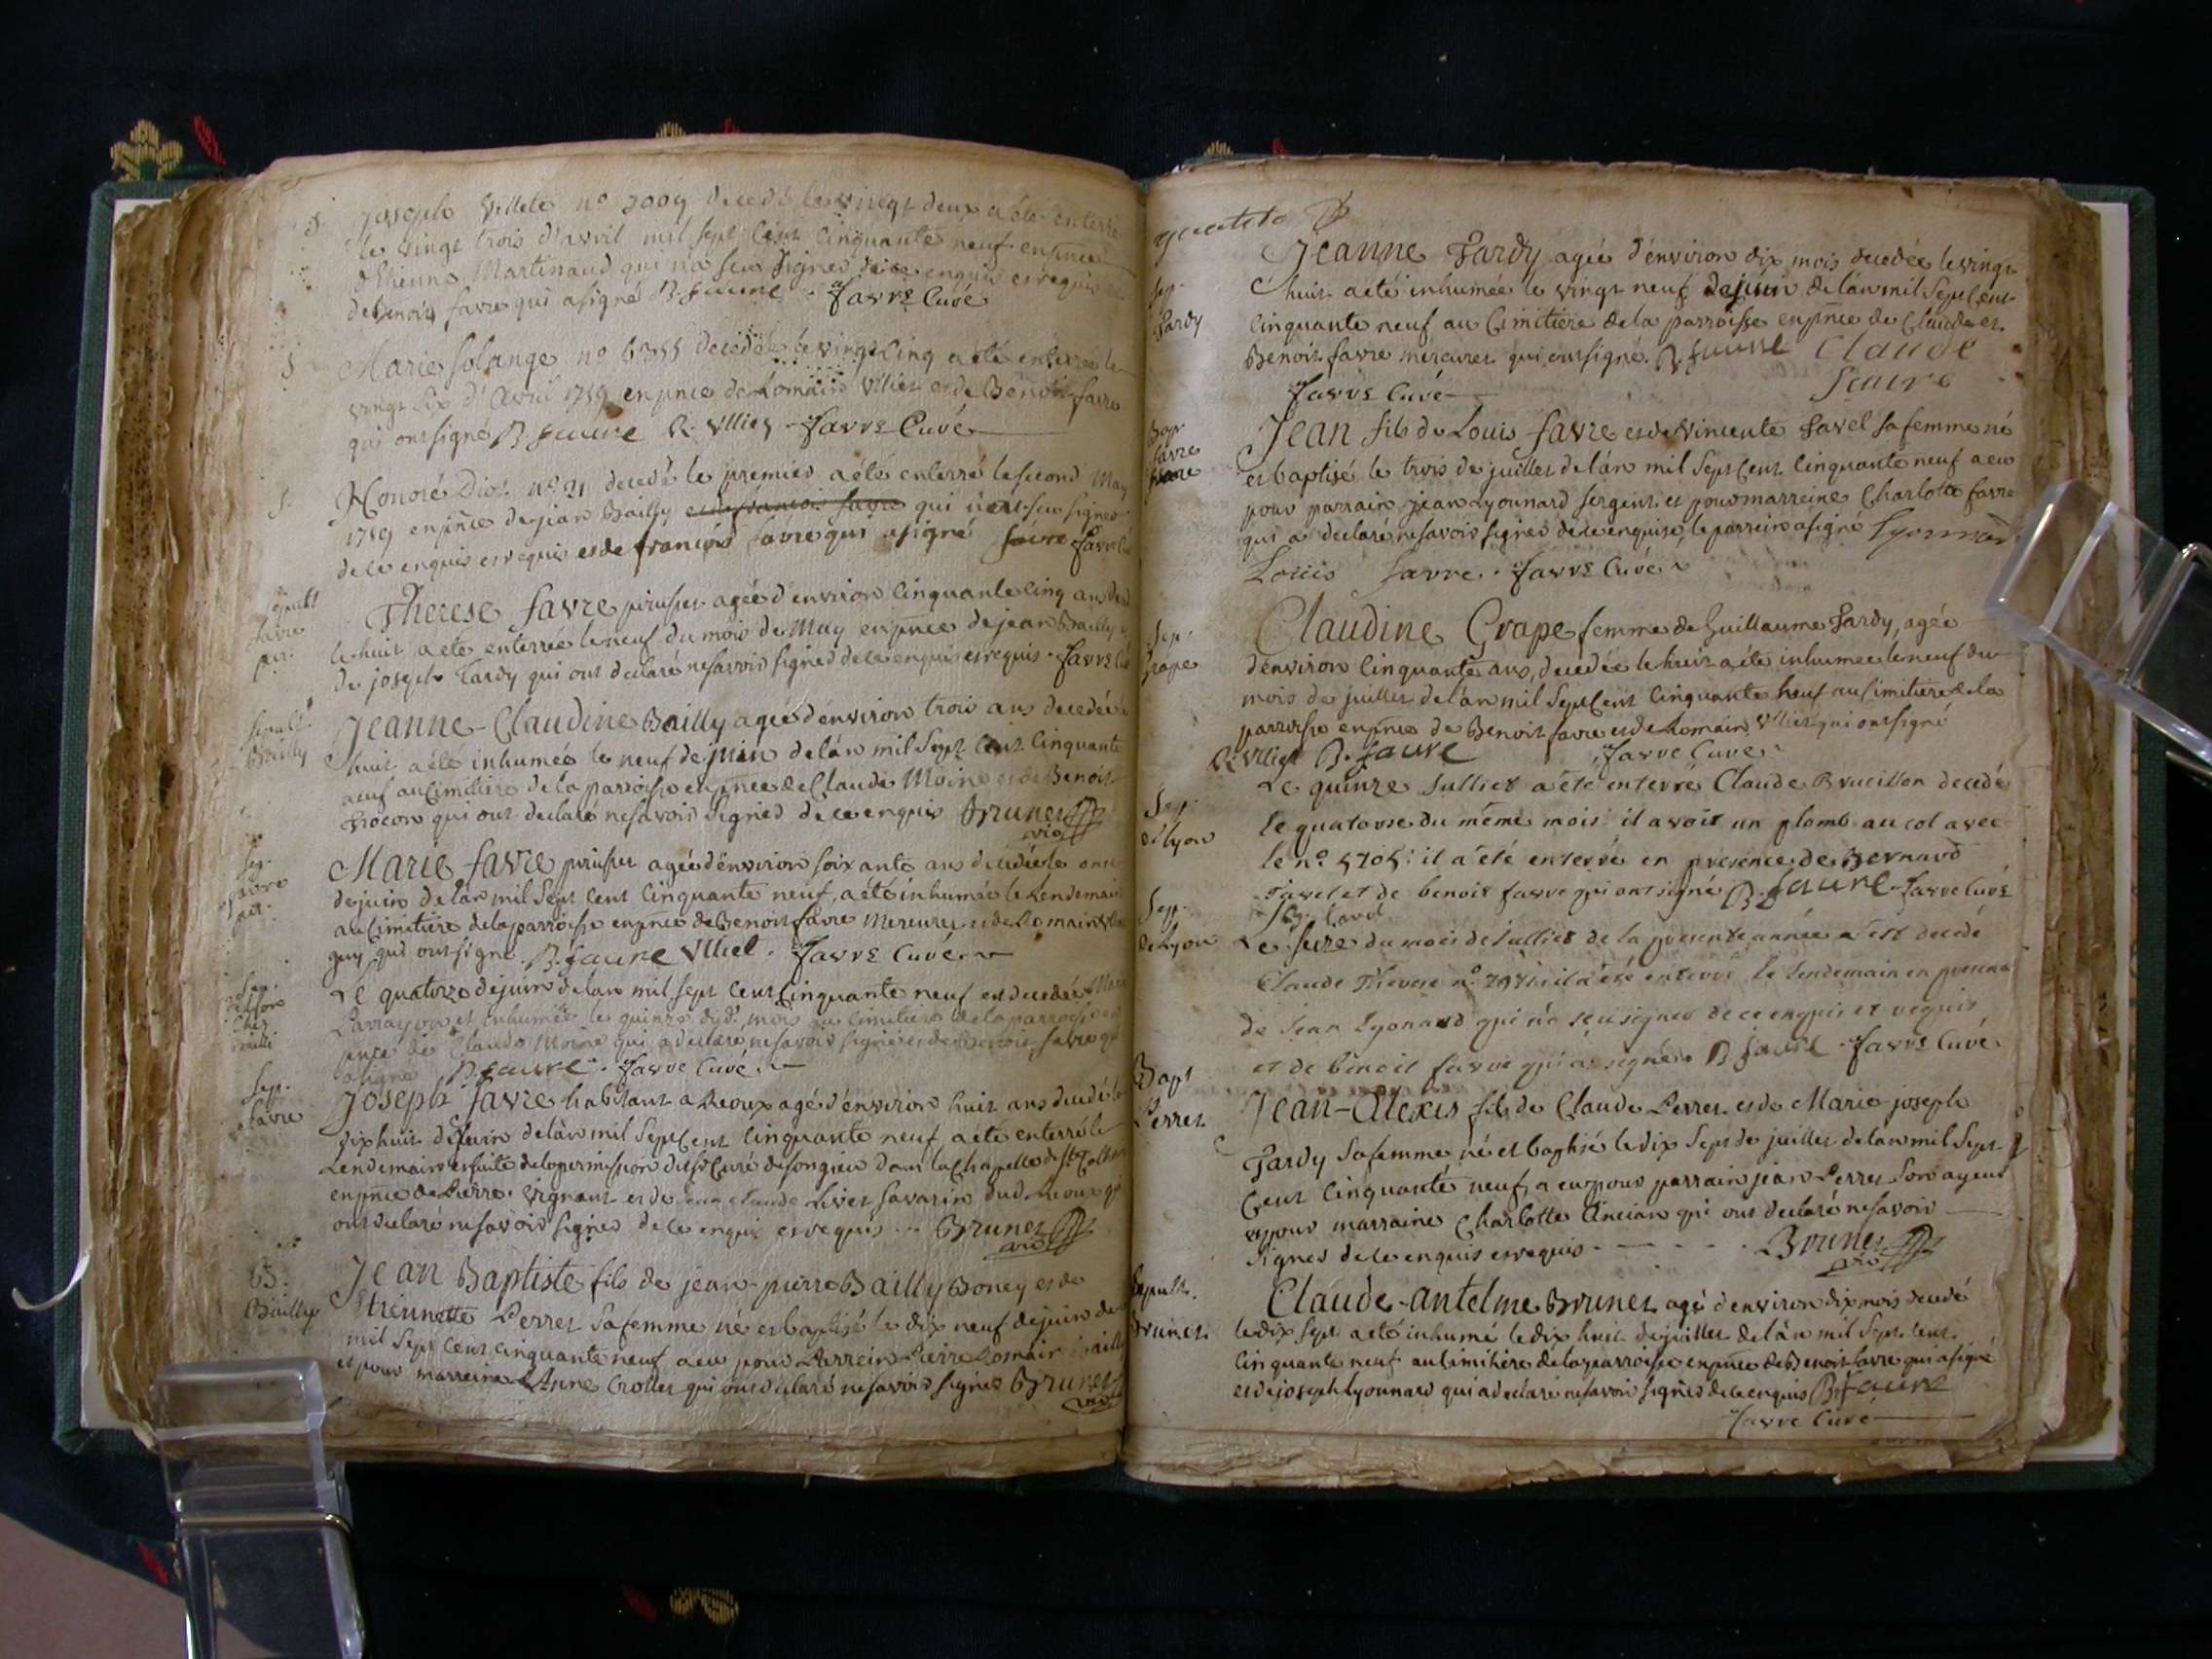 S. Joseph Villete n.o 2009 decedé le vingt deux a été enterré
le vingt trois d'avril mil sept cent cinquante neuf en pñce
d'Etienne Martinaud qui n'a seu signer de ce enquis et requis et
de benoit favre qui a signé B. faure. favre Curé
S Marie Solange n.o 6355 decedée le vingt cinq a été enterrée le
vingt six d'Avril 1759 en pnce de Romain Ulliet et de Benoit favre
qui ont signé B faure R. Ulliet. favre Curé
S. Honoré Diot n.o 21 decedé le premier a été enterré le second May
1759 en pñce de jean Bailly et de francois favre qui n'ont seu signer
de ce enquis et requis et de francois favre qui a signé faure favre
sepult
favre
per.
Therese favre agée d'environ cinquante cinq ans
le huit a ete enterrée le neuf du mois de May en pñce de jean Bailly
de joseph Tardy qui ont declaré ne savoir signer de ce enquis et requis. favre
sepult.
Bailly
Jeanne-Claudine Bailly agée d'environ trois ans decedée
huit a été inhumée le neuf de juin de l'an mil Sept Cent cinquante
neuf au Cimitiere de la parroisse en pnce de Claude Moine et de Benoit
qui ont declaré ne savoir signer de ce enquis Brunet
vic
Sep.
favre
per.
Marie favre agée d'environ soixante ans decedée le onze
de juin de l'an mil Sept Cent cinquante neuf, a été inhumée le Lendemain
au Cimitiere de la parroisse en pnce de Benoit favre Mercuret et de Romain
qui ont signé B. faure Ulliet. favre Curé.
Sep.
Le quatorze de juin de l'an mil sept cent cinquante neuf est decedée
et inhumée le quinze dud. mois au cimitiere de la parroisse en
pnce de Claude Moine qui a declaré ne savoir signer et de Benoit favre qui
a signé B. faure. favre Curé.
Sep.
favre
Joseph favre habitant a Reoux agé d'environ huit ans decedé le
dix huit de Juin de l'an mil Sept Cent cinquante neuf a été enterré le
Lendemain ensuite de la permission du Sr Curé de Songieu dans la Chapelle de
en pñce de Pierre Vignant et de jean claude Livet Savarin dud. Reoux qui
ont declaré ne savoir signer de ce enquis et requis -- Brunet
vic
B.
Bailly
Jean Baptiste fils de jean-pierre Bailly Boney et de
Etiennette Perret sa femme né et baptisé le dix neuf de juin de
mil Sept Cent cinquante neuf a eu pour Parrein Pierre Romain Bailly
et pour marreine Anne Crollet qui ont declaré ne savoir signer Brunet
vic
Sep.
Tardy
Jeanne Tardy agée d'environ dix mois decedée le vingt
huit a été inhumée le vingt neuf de juin de l'an mil Sept Cent
Cinquante neuf au Cimitiere de la parroisse en pñce de Claude et
Benoit favre mercuret qui ont signé. B. faure Claude
favre Curé faure
Bap.
favre
Jean fils de Louis favre et de Vincente Favel sa femme né
et baptisé le trois de juillet de l'an mil Sept Cent Cinquante neuf a eu
pour parrain jean Lyonnard sergent et pour marreine Charlotte favre
qui a declaré ne savoir signer de ce enquise, le parrein a signé Lyonnard
Louis favre. favre Curé
Sep.
Grape
Claudine Grape femme de Guillaume Tardy, agée
d'environ Cinquante ans, decedée le huit a été inhumée le neuf du
mois de juillet de l'an mil Sept Cent Cinquante neuf au Cimitiere de la
parroisse en pñce de Benoit favre et de Romain Ulliet qui ont signé
R. Ulliet B. faure favre Curé
Sep.
de Lyon
Le quinze Julliet a été enterré Claude Brueillon decedé
le quatorse du même mois il avoit un plomb au col avec
le n.o 5705: il a été enterré en presence de Bernard
favel et de benoit favre qui ont signé B. faure favre Curé
Sep.
de Lyon
Le seize du mois de Julliet de la presente année a est decedé
Claude Thevene n.o il a été enterré le lendemain en presence
de Jean Lyonard qui n'a seu signer de ce enquis et requis,
et de benoit favre qui a signé. B faure. favre Curé
Bapt
Perret
Jean-Alexis fils de Claude Perret et de Marie joseph
Tardy sa femme né et baptisé le dix Sept de juillet de l'an mil Sept
Cent Cinquante neuf, a eu pour parrain jean Perret Son ayeul
et pour marraine Charlotte Ancian qui ont declaré ne savoir
signer de ce enquis et requis - - - - Brunet
vic
Sepult.
Brunet.
Claude-Antelme Brunet agé d'environ dix mois decedé
le dix sept a été inhumé le dix huit de juillet de l'an mil Sept Cent
Cinquante neuf au Cimitiere de la parroisse en pñce de Benoit favre qui a signé
et de joseph Lyonnard qui a declaré ne savoir signer de ce enquis B. faure
favre Curé